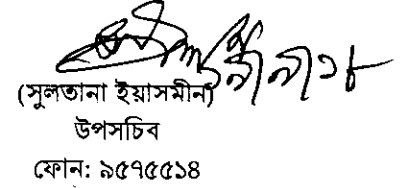 (সুলতানা ইয়াসমীন)
উপসচিব
ফোন: ৯৫৭৫৫১৪